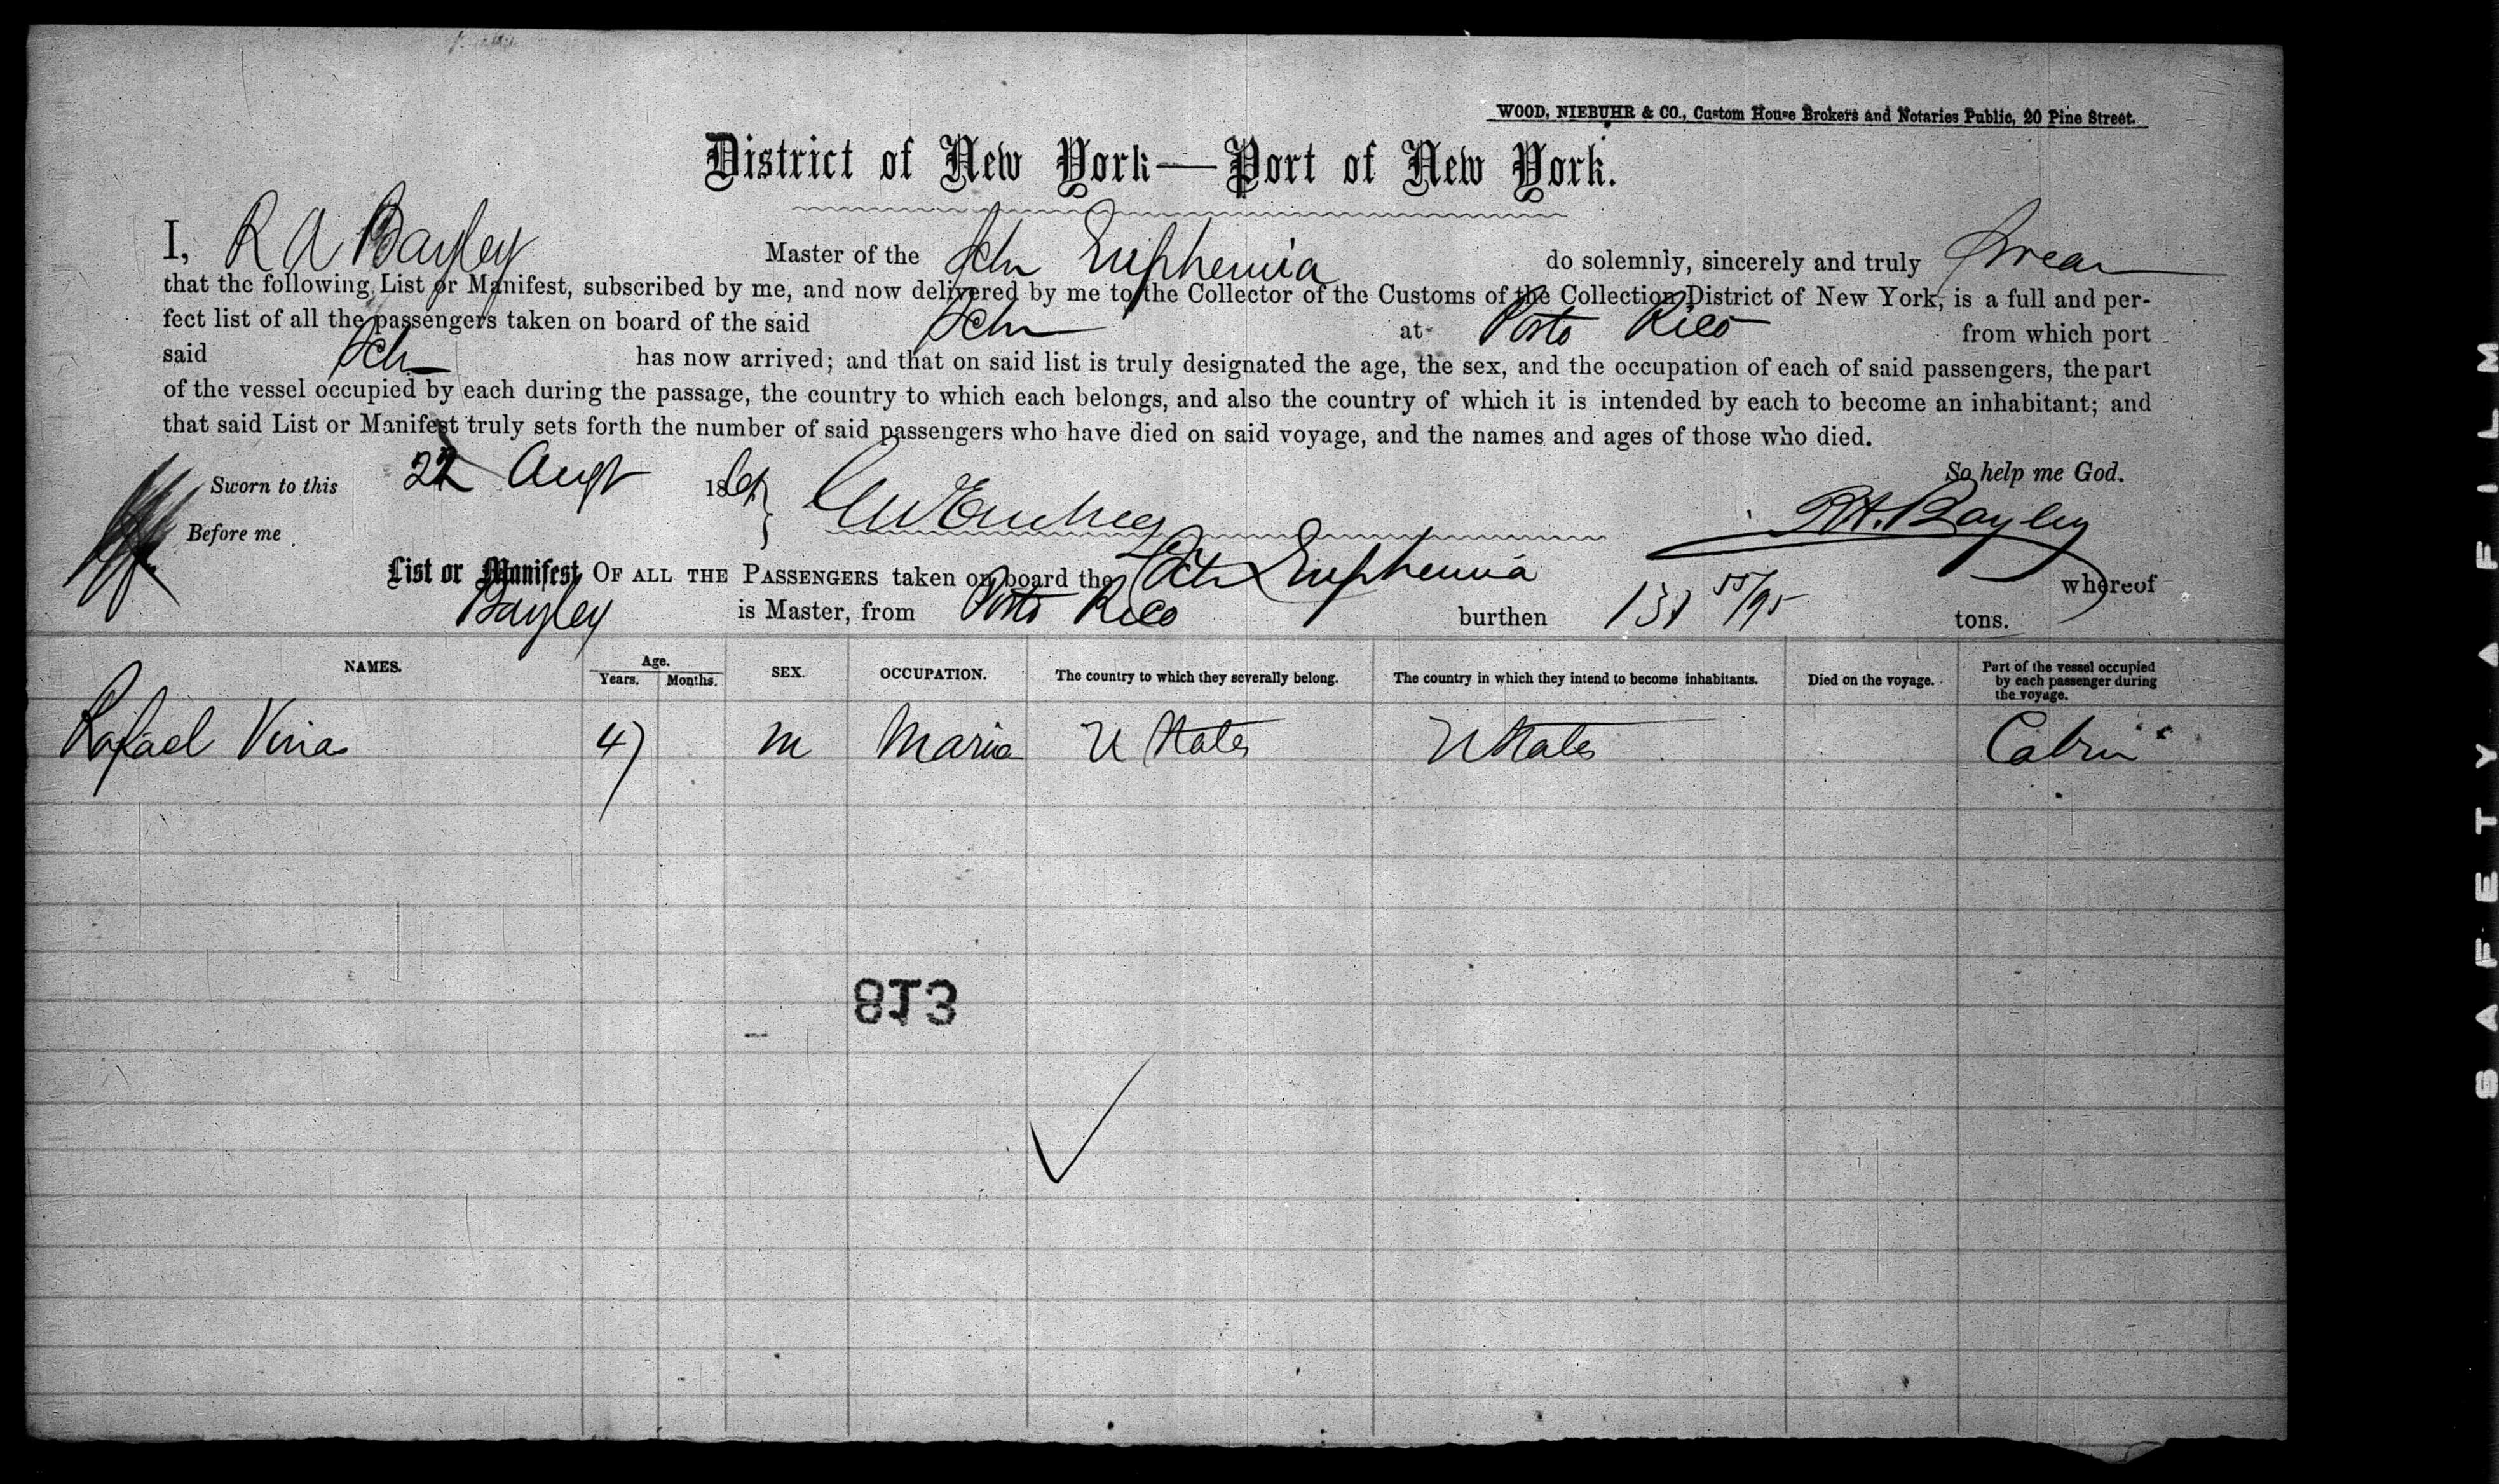 WOOD, NIEBUHR & CO., Custom House Brokers and Notaries Public, 20 Pine Street.
District of New York—Port of New York.
I, R A Bayley Master of the Schr Euphemia do solemnly, sincerely and truly swear
that the following List or Manifest, subscribed by me, and now delivered by me to the Collector of the Customs of the Collection District of New York, is a full and per-
fect list of all the passengers taken on board of the said Schr at Porto Rico from which port
said Schr has now arrived; and that on said list is truly designated the age, the sex, and the occupation of each of said passengers, the part
of the vessel occupied by each during the passage, the country to which each belongs, and also the country of which it is intended by each to become an inhabitant; and
that said List or Manifest truly sets forth the number of said passengers who have died on said voyage, and the names and ages of those who died.
So help me God.
Sworn to this 22 Augt 186
Before me
R A. Bayley
List or Manifest OF ALL THE PASSENGERS taken on board the Schr Euphemia whereof
Bayley is Master, from Porto Rico burthen 131 55/95 tons.
NAMES. Age. SEX. OCCUPATION. The country to which they severally belong. The country in which they intend to become inhabitants. Died on the voyage. Part of the vessel occupied by each passenger during the voyage.
Years. Months.
Rafael Vina 47 m U States U States Cabin
813
SAFETY A FILM